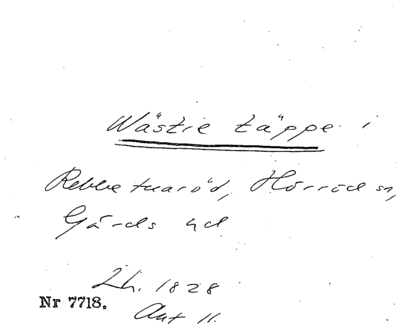 Wästre täppe i
Rebbetuaröd, Hörröds sn,
Gärds hd
Lh. 1828
Akt 11.
Nr 7718.